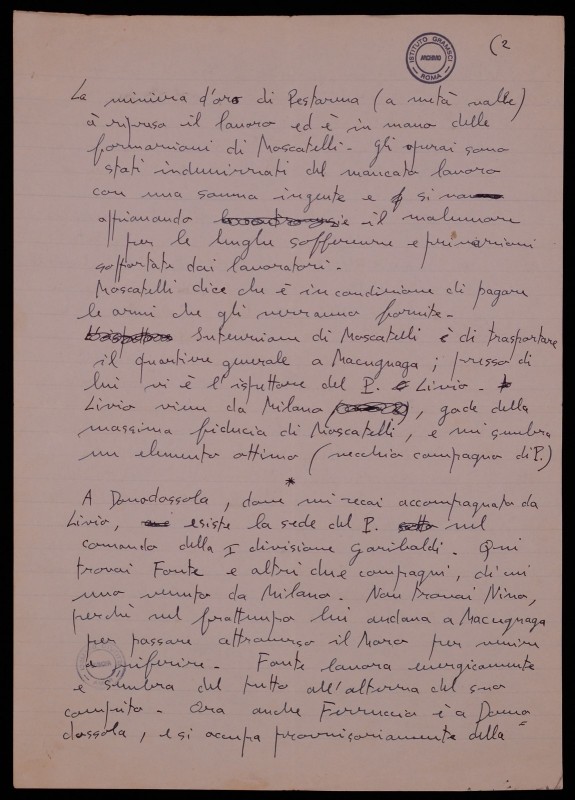 ISTITUTO GRAMSCI
ARCHIVIO
ROMA
(2
La miniera d'oro di Pestarena (a metà valle)
à ripreso il lavoro ed è in mano delle
formazioni di Moscatelli. Gli operai sono
stati indennizzati del mancato lavoro
con una somma ingente e si va
appianando il malumore
per le lunghe sofferenze e privazioni
sopportate dai lavoratori.
Moscatelli dice che è in condizione di pagare
le armi che gli verranno fornite.
Intenzione di Moscatelli è di trasportare
il quartiere generale a Macugnaga; presso di
lui vi è l'ispettore del P. Livio.
Livio viene da Milano, gode della
massima fiducia di Moscatelli, e mi sembra
un elemento ottimo (vecchio compagno di P.)
*
A Domodossola, dove mi recai accompagnato da
Livio, esiste la sede del P. nel
comando della I divisione Garibaldi. Qui
trovai Fonte e altri due compagni, di cui
uno venuto da Milano. Non trovai Nino,
perchè nel frattempo lui andava a Macugnaga
per passare attraverso il Moro per venire
a riferire. Fonte lavora energicamente
e sembra del tutto all'altezza del suo
compito. Ora anche Ferruccio è a Domo=
dossola, e si occupa provvisoriamente della